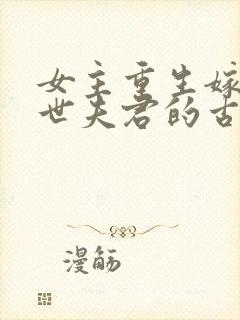 女主重生嫁
世夫君的古
漫觞